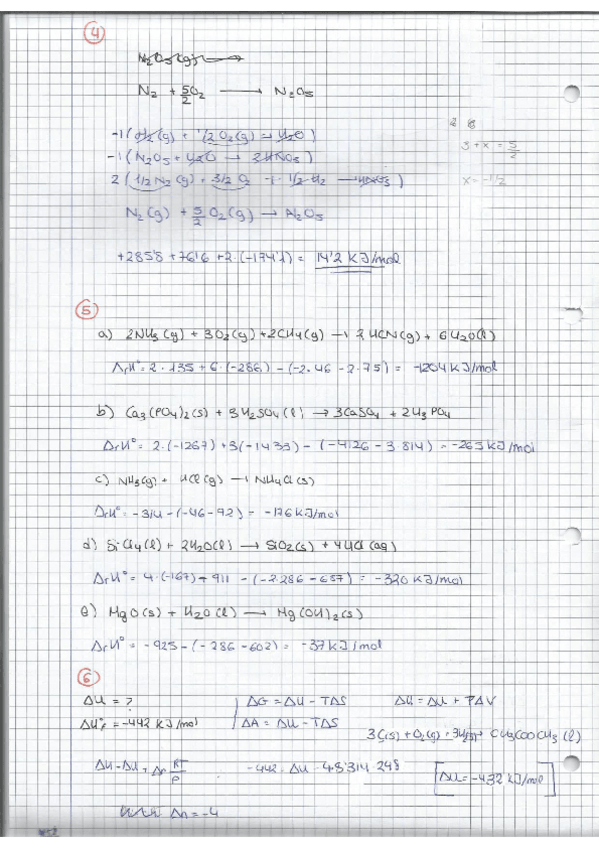 4
N₂ + 5/2 O₂ → N₂O₅
-1 (H₂(g) + 1/2 O₂(g) → H₂O)
-1 (N₂O₅ + H₂O → 2HNO₃)
3 + x = 5/2
2 (1/2 N₂(g) + 3/2 O₂ + 1/2 H₂ → HNO₃)
x = -1/2
N₂(g) + 5/2 O₂(g) → N₂O₅
+285'8 + 76'6 + 2·(-174'1) = 14'2 KJ/mol
5
a) 2NH₃(g) + 3O₂(g) + 2CH₄(g) → 2HCN(g) + 6H₂O(l)
ΔrH° = 2·135 + 6·(-286) - (-2·46 - 2·75) = -1204 KJ/mol
b) Ca₃(PO₄)₂(s) + 3H₂SO₄(l) → 3CaSO₄ + 2H₃PO₄
ΔrH° = 2·(-1267) + 3(-1433) - (-4126 - 3·814) = -263 KJ/mol
c) NH₃(g) + HCl(g) → NH₄Cl(s)
ΔrH° = -314 - (-46 - 92) = -176 KJ/mol
d) SiCl₄(l) + 2H₂O(l) → SiO₂(s) + 4HCl(aq)
ΔrH° = 4·(-167) - 911 - (-2·286 - 687) = -320 KJ/mol
e) MgO(s) + H₂O(l) → Mg(OH)₂(s)
ΔrH° = -925 - (-286 - 602) = -37 KJ/mol
6
ΔU = ?
ΔG = ΔH - TΔS
ΔH = ΔU + PΔV
ΔH°f = -442 KJ/mol
ΔA = ΔU - TΔS
3C(s) + O₂(g) + 3H₂(g) → CH₃COOCH₃(l)
ΔH = ΔU + Δn RT/P
-442 = ΔU - 4·8'314·298
ΔU = -432 KJ/mol
Δn = -4